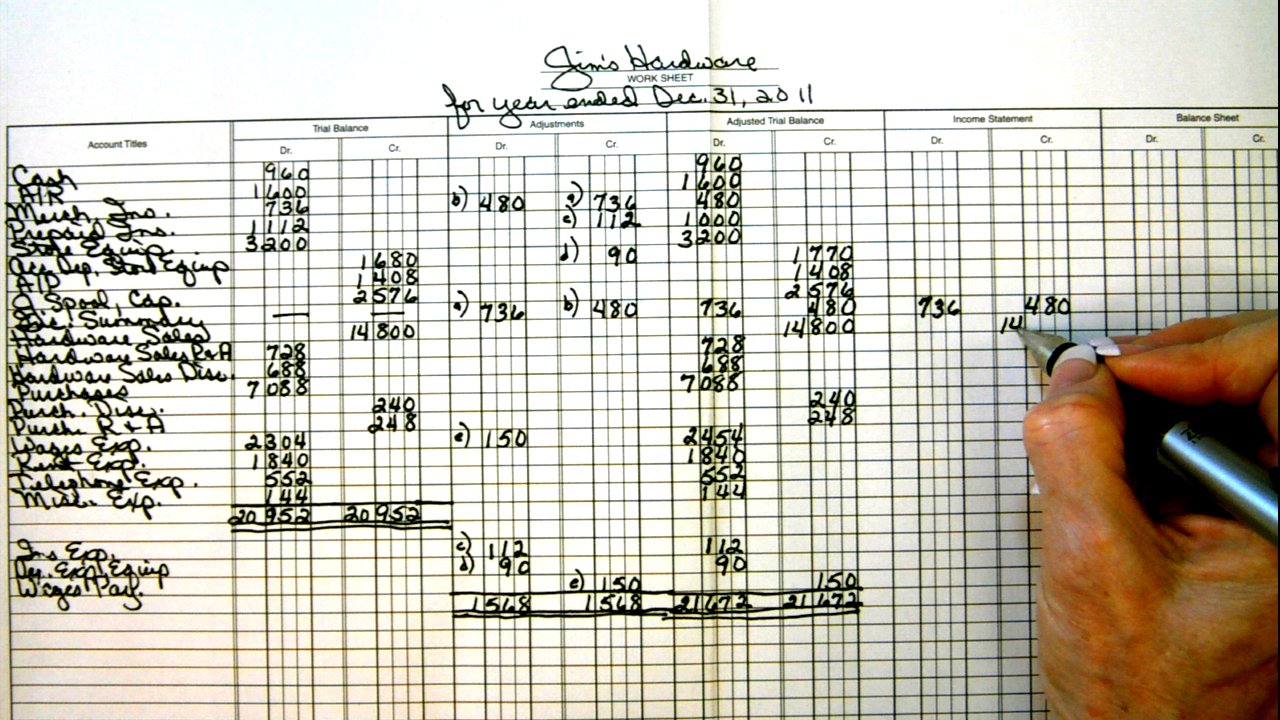 Jim's Hardware
WORK SHEET
for year ended Dec. 31, 2011
Account Titles Trial Balance Adjustments Adjusted Trial Balance Income Statement Balance Sheet
Dr. Cr. Dr. Cr. Dr. Cr. Dr. Cr. Dr. Cr.
Cash 960 960
A/R 1600 1600
Merch. Inv. 736 b) 480 a) 736 480
Prepaid Ins. 1112 c) 112 1000
Store Equip. 3200 3200
Acc. Dep. Store Equip 1680 d) 90 1770
A/P 1408 1408
J. Spool, Cap. 2576 2576
Inc. Summary — — a) 736 b) 480 736 480 736 480
Hardware Sales 14800 14800 14
Hardware Sales R+A 728 728
Hardware Sales Disc. 688 688
Purchases 7088 7088
Purch. Disc. 240 240
Purch. R + A 248 248
Wages Exp. 2304 e) 150 2454
Rent Exp. 1840 1840
Telephone Exp. 552 552
Misc. Exp. 144 144
20952 20952
Ins Exp. c) 112 112
Dep. Exp. Equip d) 90 90
Wages Pay. e) 150 150
1568 1568 21672 21672